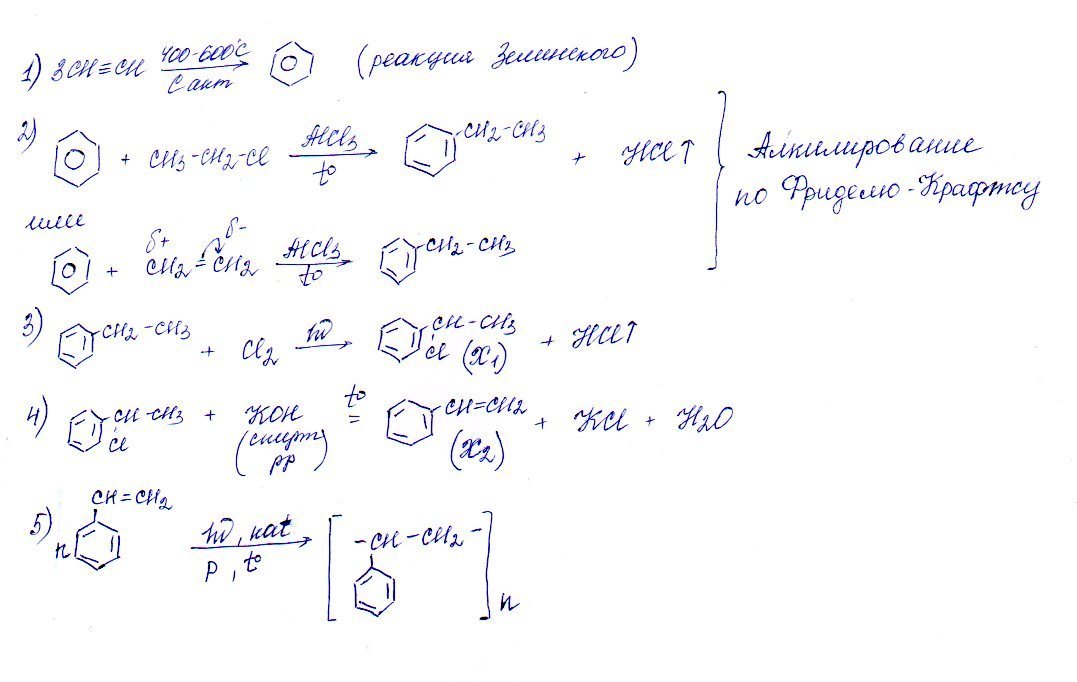 1) 3CH≡CH 400-600°C C акт (реакция Зелинского)
2) + CH3-CH2-Cl AlCl3 t° CH2-CH3 + HCl↑
Алкилирование
по Фриделю-Крафтсу
или
+ δ+ CH2=CH2 δ- AlCl3 t° CH2-CH3
3) CH2-CH3 + Cl2 hν CH-CH3 Cl (X1) + HCl↑
4) CH-CH3 Cl + KOH (спирт рр) t° = CH=CH2 (X2) + KCl + H2O
5) n CH=CH2 hν, kat p, t° [-CH-CH2-]n